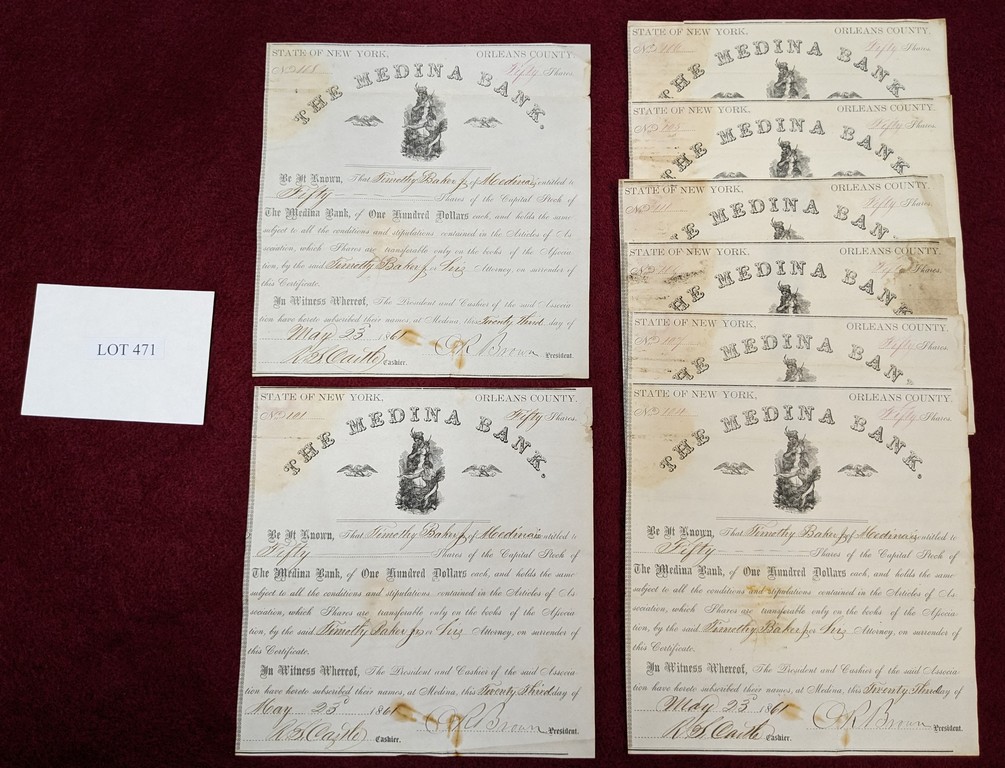 LOT 471
STATE OF NEW YORK. ORLEANS COUNTY.
No 108 Fifty Shares.
THE MEDINA BANK.
Be It Known, That Timothy Baker Jr of Medina is entitled to
Fifty Shares of the Capital Stock of
The Medina Bank, of One Hundred Dollars each, and holds the same
subject to all the conditions and stipulations contained in the Articles of As
sociation, which Shares are transferable only on the books of the Associa
tion, by the said Timothy Baker Jr or his Attorney, on surrender of
this Certificate.
In Witness Whereof, The President and Cashier of the said Associa
tion have hereto subscribed their names, at Medina, this Twenty Third day of
May 23d 1861
Cashier. President.
STATE OF NEW YORK. ORLEANS COUNTY.
No 101 Fifty Shares.
THE MEDINA BANK.
Be It Known, That Timothy Baker Jr of Medina is entitled to
Fifty Shares of the Capital Stock of
The Medina Bank, of One Hundred Dollars each, and holds the same
subject to all the conditions and stipulations contained in the Articles of As
sociation, which Shares are transferable only on the books of the Associa
tion, by the said Timothy Baker Jr or his Attorney, on surrender of
this Certificate.
In Witness Whereof, The President and Cashier of the said Associa
tion have hereto subscribed their names, at Medina, this Twenty Third day of
May 23d 1861
Cashier. Brown President.
STATE OF NEW YORK. ORLEANS COUNTY.
Fifty Shares.
THE MEDINA BANK
STATE OF NEW YORK. ORLEANS COUNTY.
Fifty Shares.
THE MEDINA BANK
STATE OF NEW YORK. ORLEANS COUNTY.
Fifty Shares.
HE MEDINA BAN
STATE OF NEW YORK. ORLEANS COUNTY.
Fifty Shares.
HE MEDINA BANK
STATE OF NEW YORK. ORLEANS COUNTY.
No 107 Fifty Shares.
HE MEDINA BAN
STATE OF NEW YORK. ORLEANS COUNTY.
No 104 Fifty Shares.
THE MEDINA BANK.
Be It Known, That Timothy Baker Jr of Medina is entitled to
Fifty Shares of the Capital Stock of
The Medina Bank, of One Hundred Dollars each, and holds the same
subject to all the conditions and stipulations contained in the Articles of As
sociation, which Shares are transferable only on the books of the Associa
tion, by the said Timothy Baker Jr or his Attorney, on surrender of
this Certificate.
In Witness Whereof, The President and Cashier of the said Associa
tion have hereto subscribed their names, at Medina, this Twenty Third day of
May 23d 1861
Cashier. Brown President.